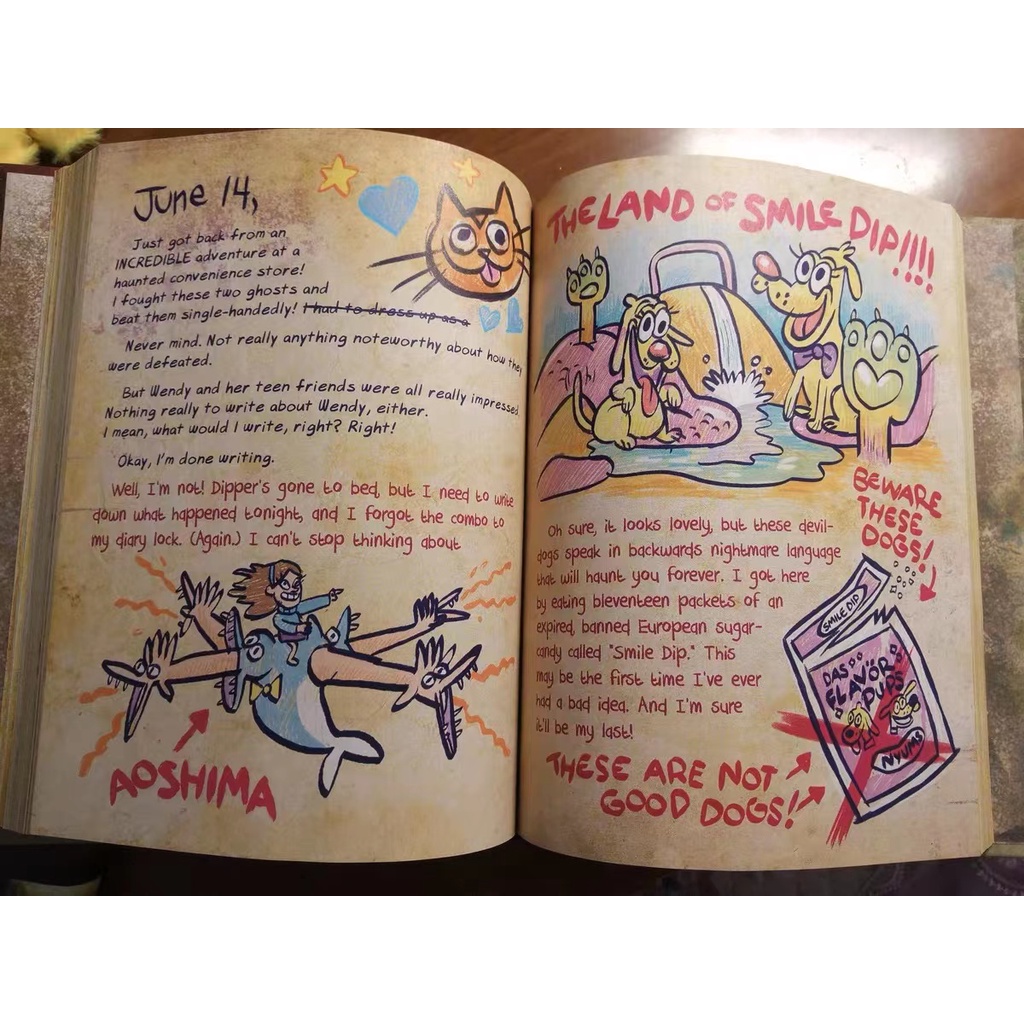 June 14,
Just got back from an
INCREDIBLE adventure at a
haunted convenience store!
I fought these two ghosts and
beat them single-handedly! I had to dress up as a
Never mind. Not really anything noteworthy about how they
were defeated.
But Wendy and her teen friends were all really impressed.
Nothing really to write about Wendy, either.
I mean, what would I write, right? Right!
Okay, I'm done writing.
Well, I'm not! Dipper's gone to bed, but I need to write
down what happened tonight, and I forgot the combo to
my diary lock. (Again.) I can't stop thinking about
AOSHIMA
THE LAND OF SMILE DIP!!!!
BEWARE
THESE
DOGS!
Oh sure, it looks lovely, but these devil-
dogs speak in backwards nightmare language
that will haunt you forever. I got here
by eating bleventeen packets of an
expired, banned European sugar-
candy called "Smile Dip." This
may be the first time I've ever
had a bad idea. And I'm sure
it'll be my last!
SMILE DIP
DAS
FLAVOR
PUPS
NYUMS
THESE ARE NOT
GOOD DOGS!